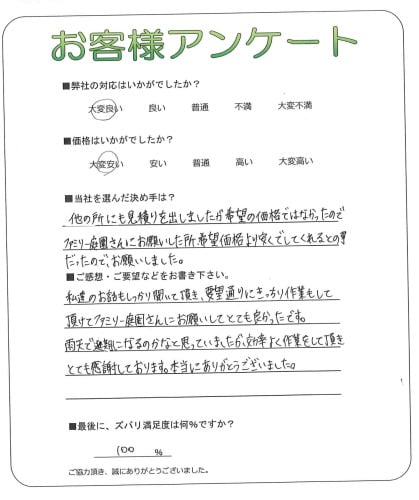 お客様アンケート
■弊社の対応はいかがでしたか？
大変良い 良い 普通 不満 大変不満
■価格はいかがでしたか？
大変安い 安い 普通 高い 大変高い
■当社を選んだ決め手は？
他の所にも見積りを出しましたが希望の価格ではなかったので
ファミリー庭園さんにお願いした所希望価格より安くでしてくれるとの事
だったので、お願いしました。
■ご感想・ご要望などをお書き下さい。
私達のお話もしっかり聞いて頂き、要望通りにきっちり作業もして
頂けてファミリー庭園さんにお願いしてとても良かったです。
雨天で延期になるのかなと思っていましたが、効率よく作業をして頂き
とても感謝しております。本当にありがとうございました。
■最後に、ズバリ満足度は何%ですか？
100 %
ご協力頂き、誠にありがとうございました。